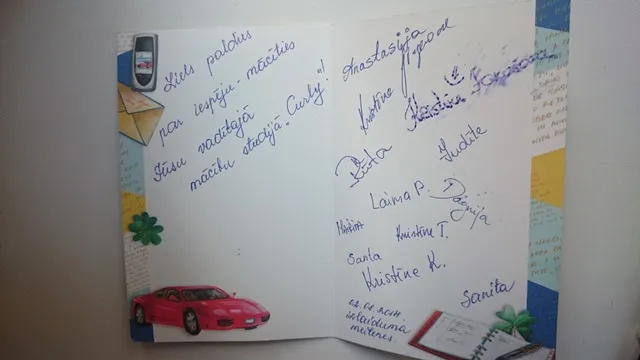 Liels paldies
par iespēju mācīties
Jūsu vadītajā
mācību studijā "Curly"!
Anastasija
Kristīne
Kristīne
Rūta
Judīte
Laima P.
Dagnija
Santa
Kristīne T.
Kristīne K.
Sanita
izlaiduma
meitenes.